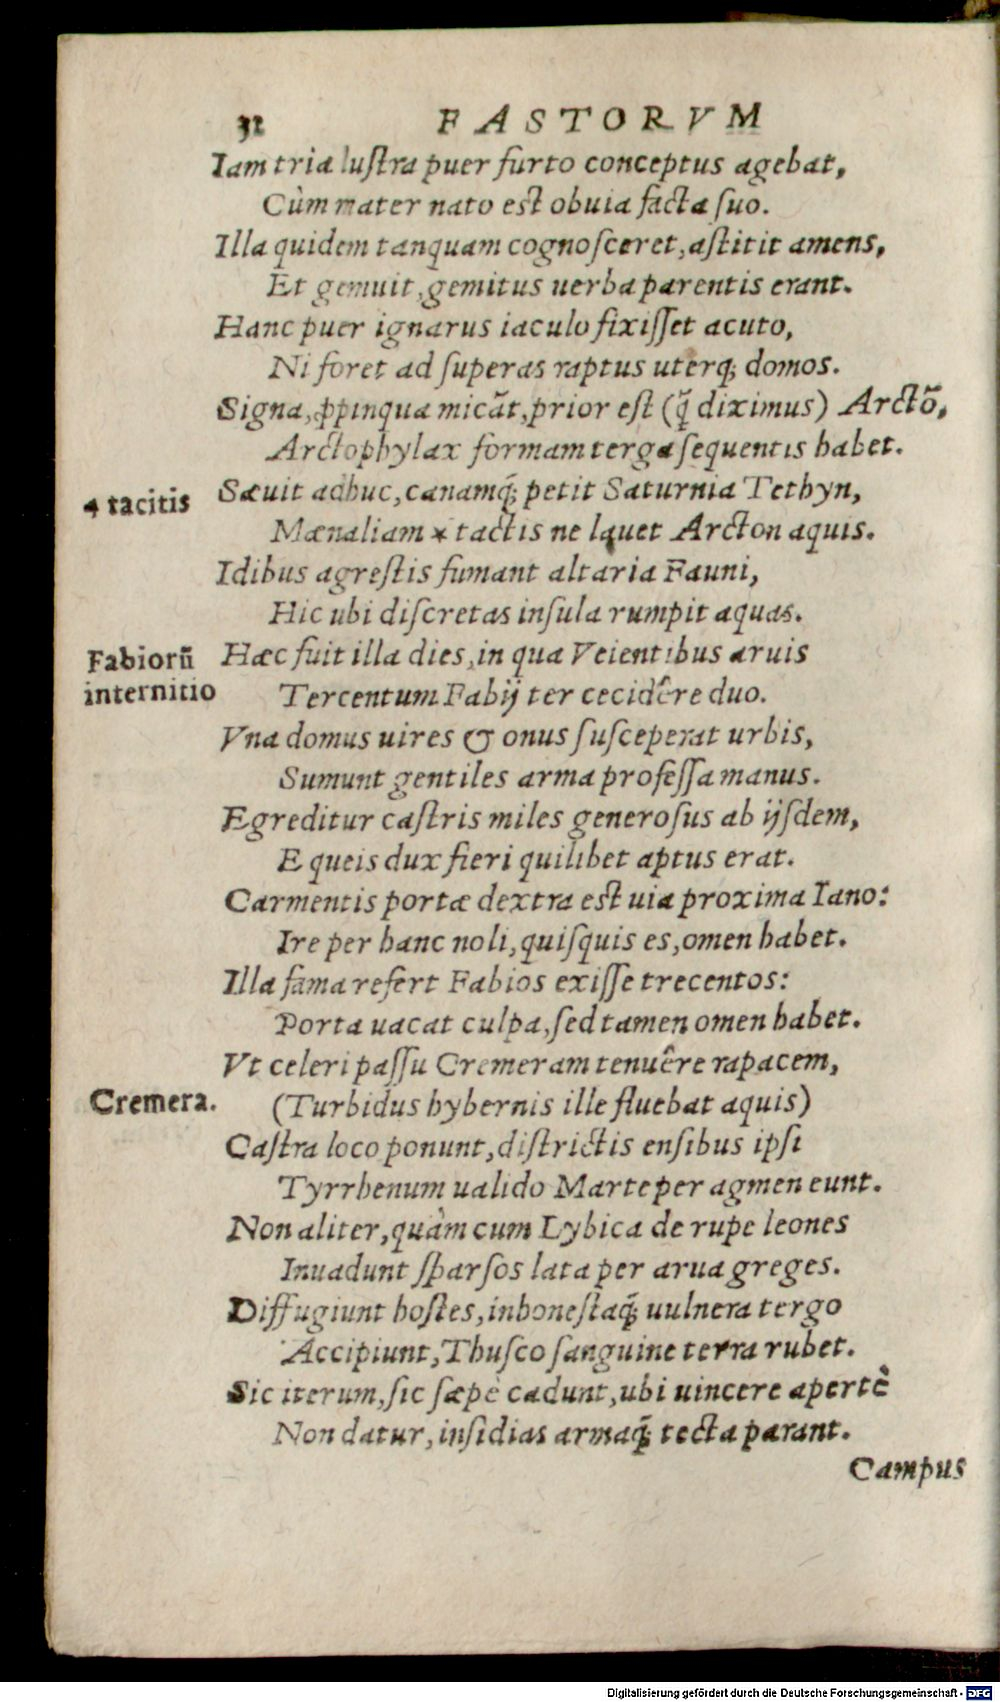 32 FASTORVM
Iam tria luſtra puer furto conceptus agebat,
Cùm mater nato est obuia facta ſuo.
Illa quidem tanquam cognoſceret, aſtitit amens,
Et gemuit, gemitus uerba parentis erant.
Hanc puer ignarus iaculo fixiſſet acuto,
Ni foret ad ſuperas raptus uterq; domos.
Signa, ꝓpinqua micãt, prior eſt (q̃ diximus) Arctõ,
Arctophylax formam terga ſequentis habet.
Sæuit adhuc, canamq́; petit Saturnia Tethyn,
4 tacitis
Mænaliam * tactis ne lauet Arcton aquis.
Idibus agreſtis fumant altaria Fauni,
Hic ubi diſcretas inſula rumpit aquas.
Fabiorũ
internitio
Hæc fuit illa dies, in qua Veientibus aruis
Tercentum Fabij ter cecidêre duo.
Vna domus uires & onus ſuſceperat urbis,
Sumunt gentiles arma profeſſa manus.
Egreditur caſtris miles generoſus ab ijſdem,
E queis dux fieri quilibet aptus erat.
Carmentis portæ dextra est uia proxima Iano:
Ire per hanc noli, quiſquis es, omen habet.
Illa fama refert Fabios exiſſe trecentos:
Porta uacat culpa, ſed tamen omen habet.
Vt celeri paſſu Cremeram tenuêre rapacem,
Cremera.
(Turbidus hybernis ille fluebat aquis)
Caſtra loco ponunt, diſtrictis enſibus ipſi
Tyrrhenum ualido Marte per agmen eunt.
Non aliter, quàm cum Lybica de rupe leones
Inuadunt ſparſos lata per arua greges.
Diffugiunt hoſtes, inhoneſtaq́; uulnera tergo
Accipiunt, Thuſco ſanguine terra rubet.
Sic iterum, ſic ſæpè cadunt, ubi uincere apertè
Non datur, inſidias armaq́; tecta parant.
Campus
Digitalisierung gefördert durch die Deutsche Forschungsgemeinschaft - DFG